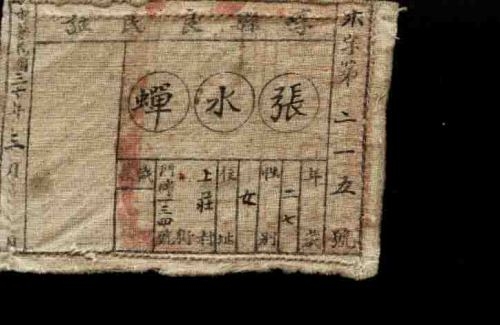 字第二一五號
縣良民證
張水蟬
年二七歲
性別
女
住址
上莊村街
門牌一三四號
民國三十年三月